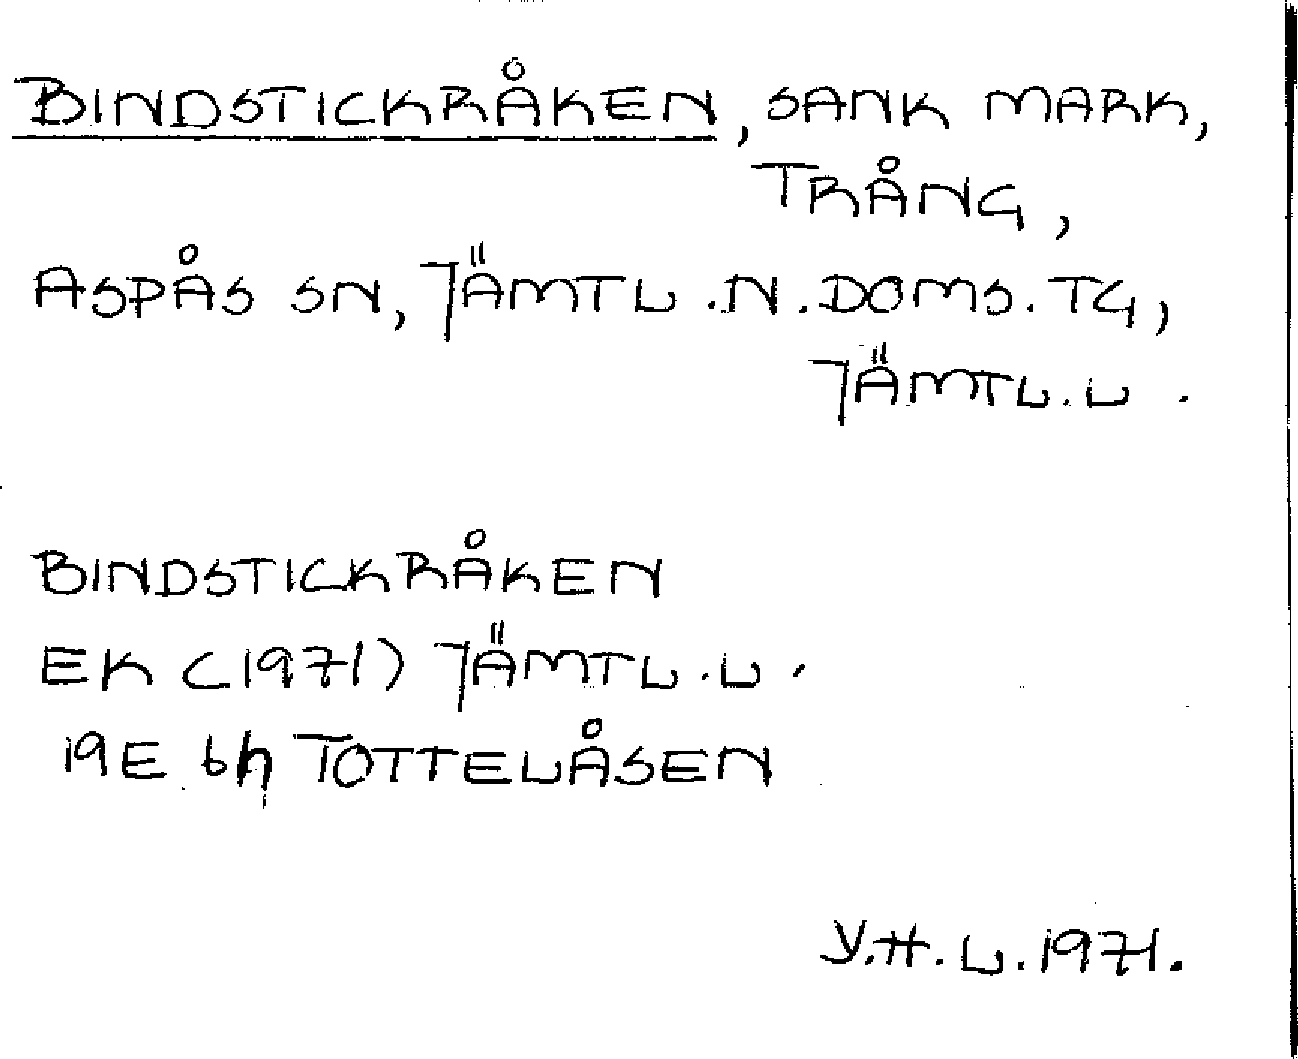 BINDSTICKRÅKEN, SANK MARK,
TRÅNG,
ASPÅS SN, JÄMTL.N.DOMS.TG,
JÄMTL.L.
BINDSTICKRÅKEN
EK (1971) JÄMTL.L.
19E 6h TOTTELÅSEN
Y.H.L.1971.